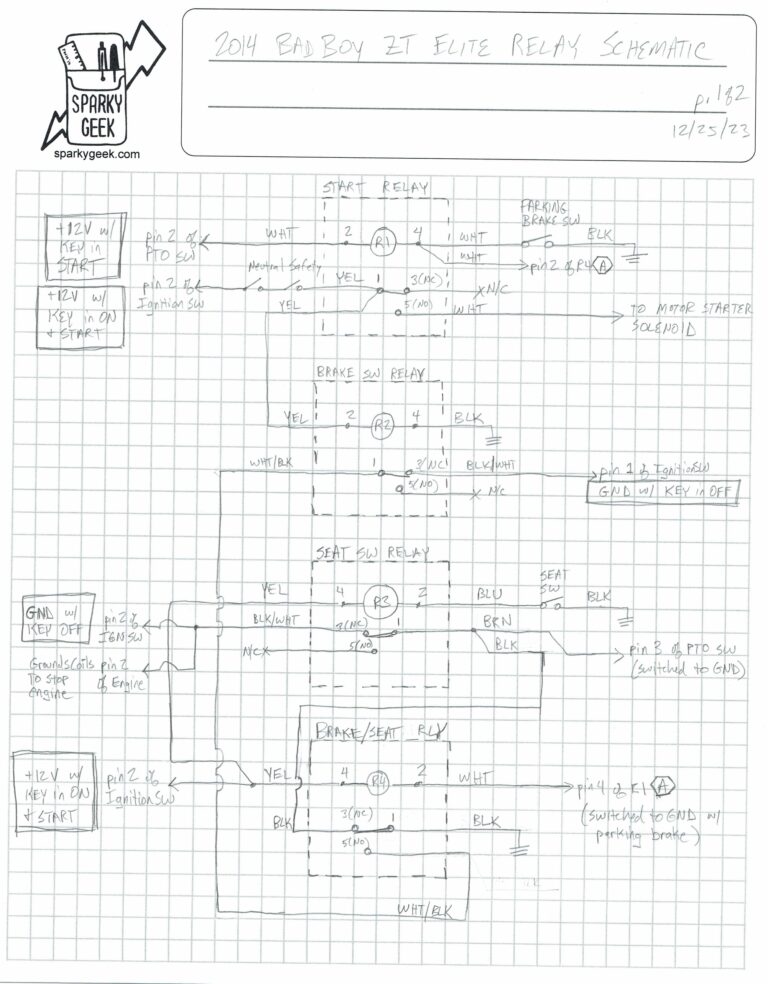 SPARKY
GEEK
sparkygeek.com
2014 BAD BOY ZT ELITE RELAY SCHEMATIC
p. 1 of 2
12/25/23
START RELAY
+12V w/
KEY in
START
pin 2 of
PTO SW
WHT
2
R1
4
WHT
PARKING
BRAKE SW
BLK
WHT
pin 2 of R4 A
+12V w/
KEY in ON
+ START
pin 2 of
Ignition SW
Neutral Safety
YEL
1
3(NC)
N/C
YEL
5(NO)
WHT
TO MOTOR STARTER
SOLENOID
BRAKE SW RELAY
YEL
2
R2
4
BLK
WHT/BLK
1
3(NC)
BLK/WHT
pin 1 of Ignition SW
5(NO)
N/C
GND w/ KEY in OFF
SEAT SW RELAY
YEL
4
R3
2
BLU
SEAT
SW
BLK
GND w/
KEY OFF
pin 2 of
IGN SW
BLK/WHT
3(NC)
1
BRN
N/C
5(NO)
BLK
pin 3 of PTO SW
(switched to GND)
Grounds Coils
To stop
engine
pin 2
of Engine
BRAKE/SEAT RLY
+12V w/
KEY in ON
+ START
pin 2 of
Ignition SW
YEL
4
R4
2
WHT
pin 4 of R1 A
(switched to GND w/
parking brake)
BLK
3(NC)
1
BLK
5(NO)
WHT/BLK